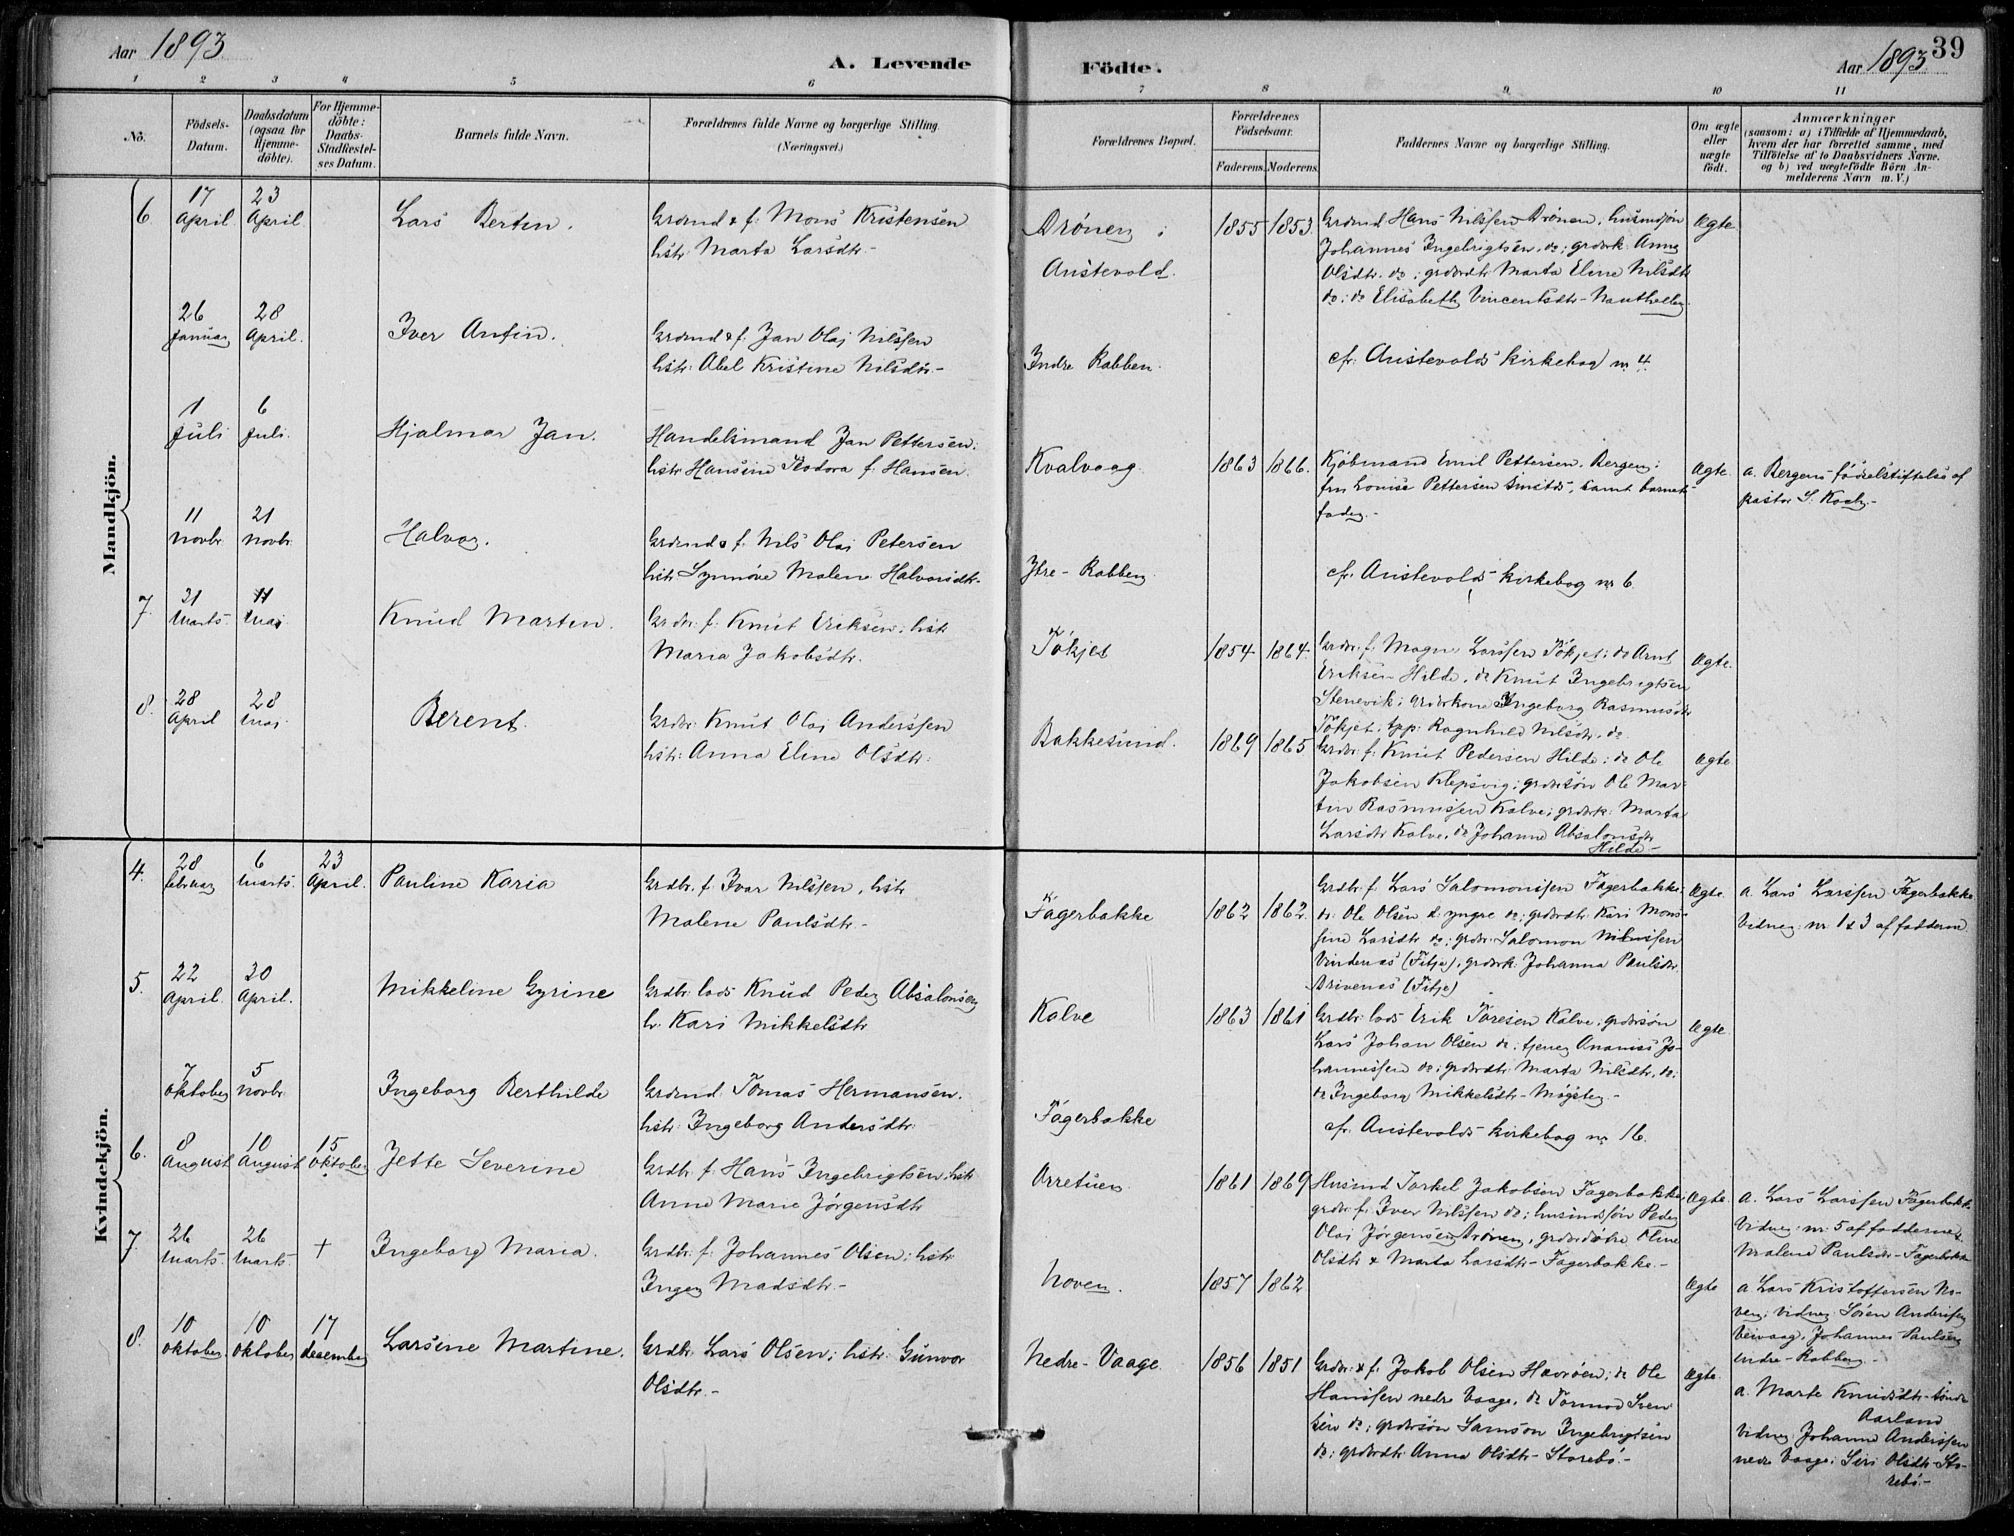 Aar 1893
A. Levende
Födte.
Aar 1893
39
1 2 3 4 5 6 7 8 9 10 11
No.
Födsels-
Datum.
Daabsdatum
(ogsaa for
Hjemme-
döbte).
For Hjemme-
döbte:
Daabs-
Stadfæstel-
ses Datum.
Barnets fulde Navn.
Forældrenes fulde Navne og borgerlige Stilling.
(Næringsvei.)
Forældrenes Bopæl.
Forældrenes
Födselsaar.
Faderens.
Moderens.
Faddernes Navne og borgerlige Stilling.
Om ægte
eller
uægte
födt.
Anmærkninger
(saasom: a) i Tilfælde af Hjemmedaab,
hvem der har forrettet samme, med
Tilföielse af to Daabsvidners Navne.
og b) ved uægtefödte Börn An-
melderens Navn m. V.)
Mandkjön.
6. 17 April 23 April
Lars Bertin.
Grdmd & f. Mons Kristensen
hstr Marta Larsdtr.-
Drönen i
Austevold.
1855 1853.
Grdmd Hans Nilssen Drönen, husmdsön
Johannes Ingebrigtsen, do; grdbrk. Anna
Olsdtr. do; grdbrdtr Marta Eline Nilsdtr
do; do Elisabeth Vincentsdtr
Ægte.
26 Januar 28 April.
Iver Anfin.
Grdmd & f. Jan Olai Nilssen
hstr: Abel Kristine Nilsdtr.-
Indre Rabben.
cfr. Austevolds kirkebog nr 4.
1 Juli 6 Juli.
Hjalmar Jan.
Handelsmand Jan Pettersen;
hstr Hansine Teodora f. Hansen.
Kvalvaag.
1863 1866.
Kjöbmand Emil Pettersen. Bergen;
fru Louise Pettersen, samt barnets
fader.-
Ægte.
a. Bergens födselstiftelse af
pastor S. Koch.-
11 Novbr 21 Novbr
Halvor.
Grdmd & f. Nils Olai Petersen
hstr Synnöve Malene Halvorsdtr.
Ytre-Rabben.
cfr. Austevolds kirkebog nr 6.
7. 21 Marts. 11 Mai
Knud Martin.
Grdbr. f. Knut Eriksen; hstr
Maria Jakobsdtr.
Tökjet
1854 1864.
Grdbr. f. Magne Larssen Tökjet; do Arnt
Eriksen Hilde, do Knut Ingebrigtsen
Stenevik; grdbrkone Ingeborg Rasmusdtr
Tökjet; Ragnhild Nilsdtr. do
Ægte.
8. 28 April 28 Mai
Berent.
Grdbr. Knut Olai Anderssen
hstr: Anna Eline Olsdtr.
Bakkesund.
1869 1865
Grdbr. f. Knut Pedersen Hilde; do Ole
Jakobsen Klepsvig; grdbrsön Ole Mar-
tin Rasmussen Kalve; grdbrk. Marta
Larsdtr Kalve, do Johanne Absalonsdtr
Hilde-
Ægte
Kvindekjön.
4. 28 Februar 6 Marts. 23 April.
Pauline Karia
Grdbr. f. Ivar Nilssen, hstr
Malene Paulsdtr.-
Fagerbakke
1862 1862.
Grdbr. f. Lars Salomonsen Fagerbakke;
do. Ole Olsen d. yngre do; grdbrdtr Kari Mons-
sine Larsdtr do; grdbr. Salomon
Vindenes (Fitje), grdbrk. Johanna Paulsdtr.
Drivenes (Fitje)
Ægte.
a. Lars Larssen Fagerbakke.
Vidner: nr 1 & 3 af fadderne.
5. 22 April. 30 April.
Mikkeline Gyrine
Grdbr. lods Knud Peder Absalonsen
h. Kari Mikkelsdtr
Kalve
1863 1861
Grdbr. lods Erik Toresen Kalve, grdbrsön
Lars Johan Olsen do; tjener Ananias Jo-
hannessen do; grdbrdtr. Marta Nilsdtr, do;
do Ingeborg Mikkelsdtr-Mögster.-
Ægte.
7 Oktober 5 Novbr
Ingeborg Berthilde
Grdmd Tomas Hermansen.
hstr: Ingeborg Andersdtr.
Fagerbakke
cfr. Austevolds kirkebog nr 16.
6. 8 August 10 August 15 Oktober
Jette Severine
Grdbr. f. Hans Ingebrigtsen, hstr
Anne Marie Jörgensdtr
Orretuen
1861 1869
Husmd Torkel Jakobsen Fagerbakke,
grdbr. f. Iver Nilssen do; husmdsön Peder
Olai Jörgensen Drönen, Oline
Olsdtr & Marta Larsdtr-Fagerbakke.-
Ægte.
a. Lars Larssen Fagerbakke
Vidner: nr. 5 af fadderne &
Malene Paulsdtr-Fagerbakke
7. 26 Marts. 26 Marts. +
Ingeborg Maria.
Grdbr. f. Johannes Olsen; hstr
Inger Madsdtr.-
Noven.
1857 1862
Ægte
a. Lars Kristoffersen No-
ven; vidner Sören Anderssen
Veivaag, Johannes Paulsen
Indre-Rabben.-
8. 10 Oktober. 10 Oktober 17 Desember
Larsine Martine.
Grdbr. Lars Olsen; hstr: Gunvor
Olsdtr.-
Nedre-Vaage.
1856 1851
Grdbr. & f. Jakob Olsen Havröen; do Ole
Hanssen nedre Vaage, do Tormod Iver-
sen do; grdbrsön Samson Ingebrigtsen
do; grdbrdtr Anna Olsdtr-Storebö.-
Ægte.
a. Marte Knudsdtr-
Aarland
Vidner: Johanne Anderssen
nedre Vaage; Siri Olsdtr-Sto-
rebö.-